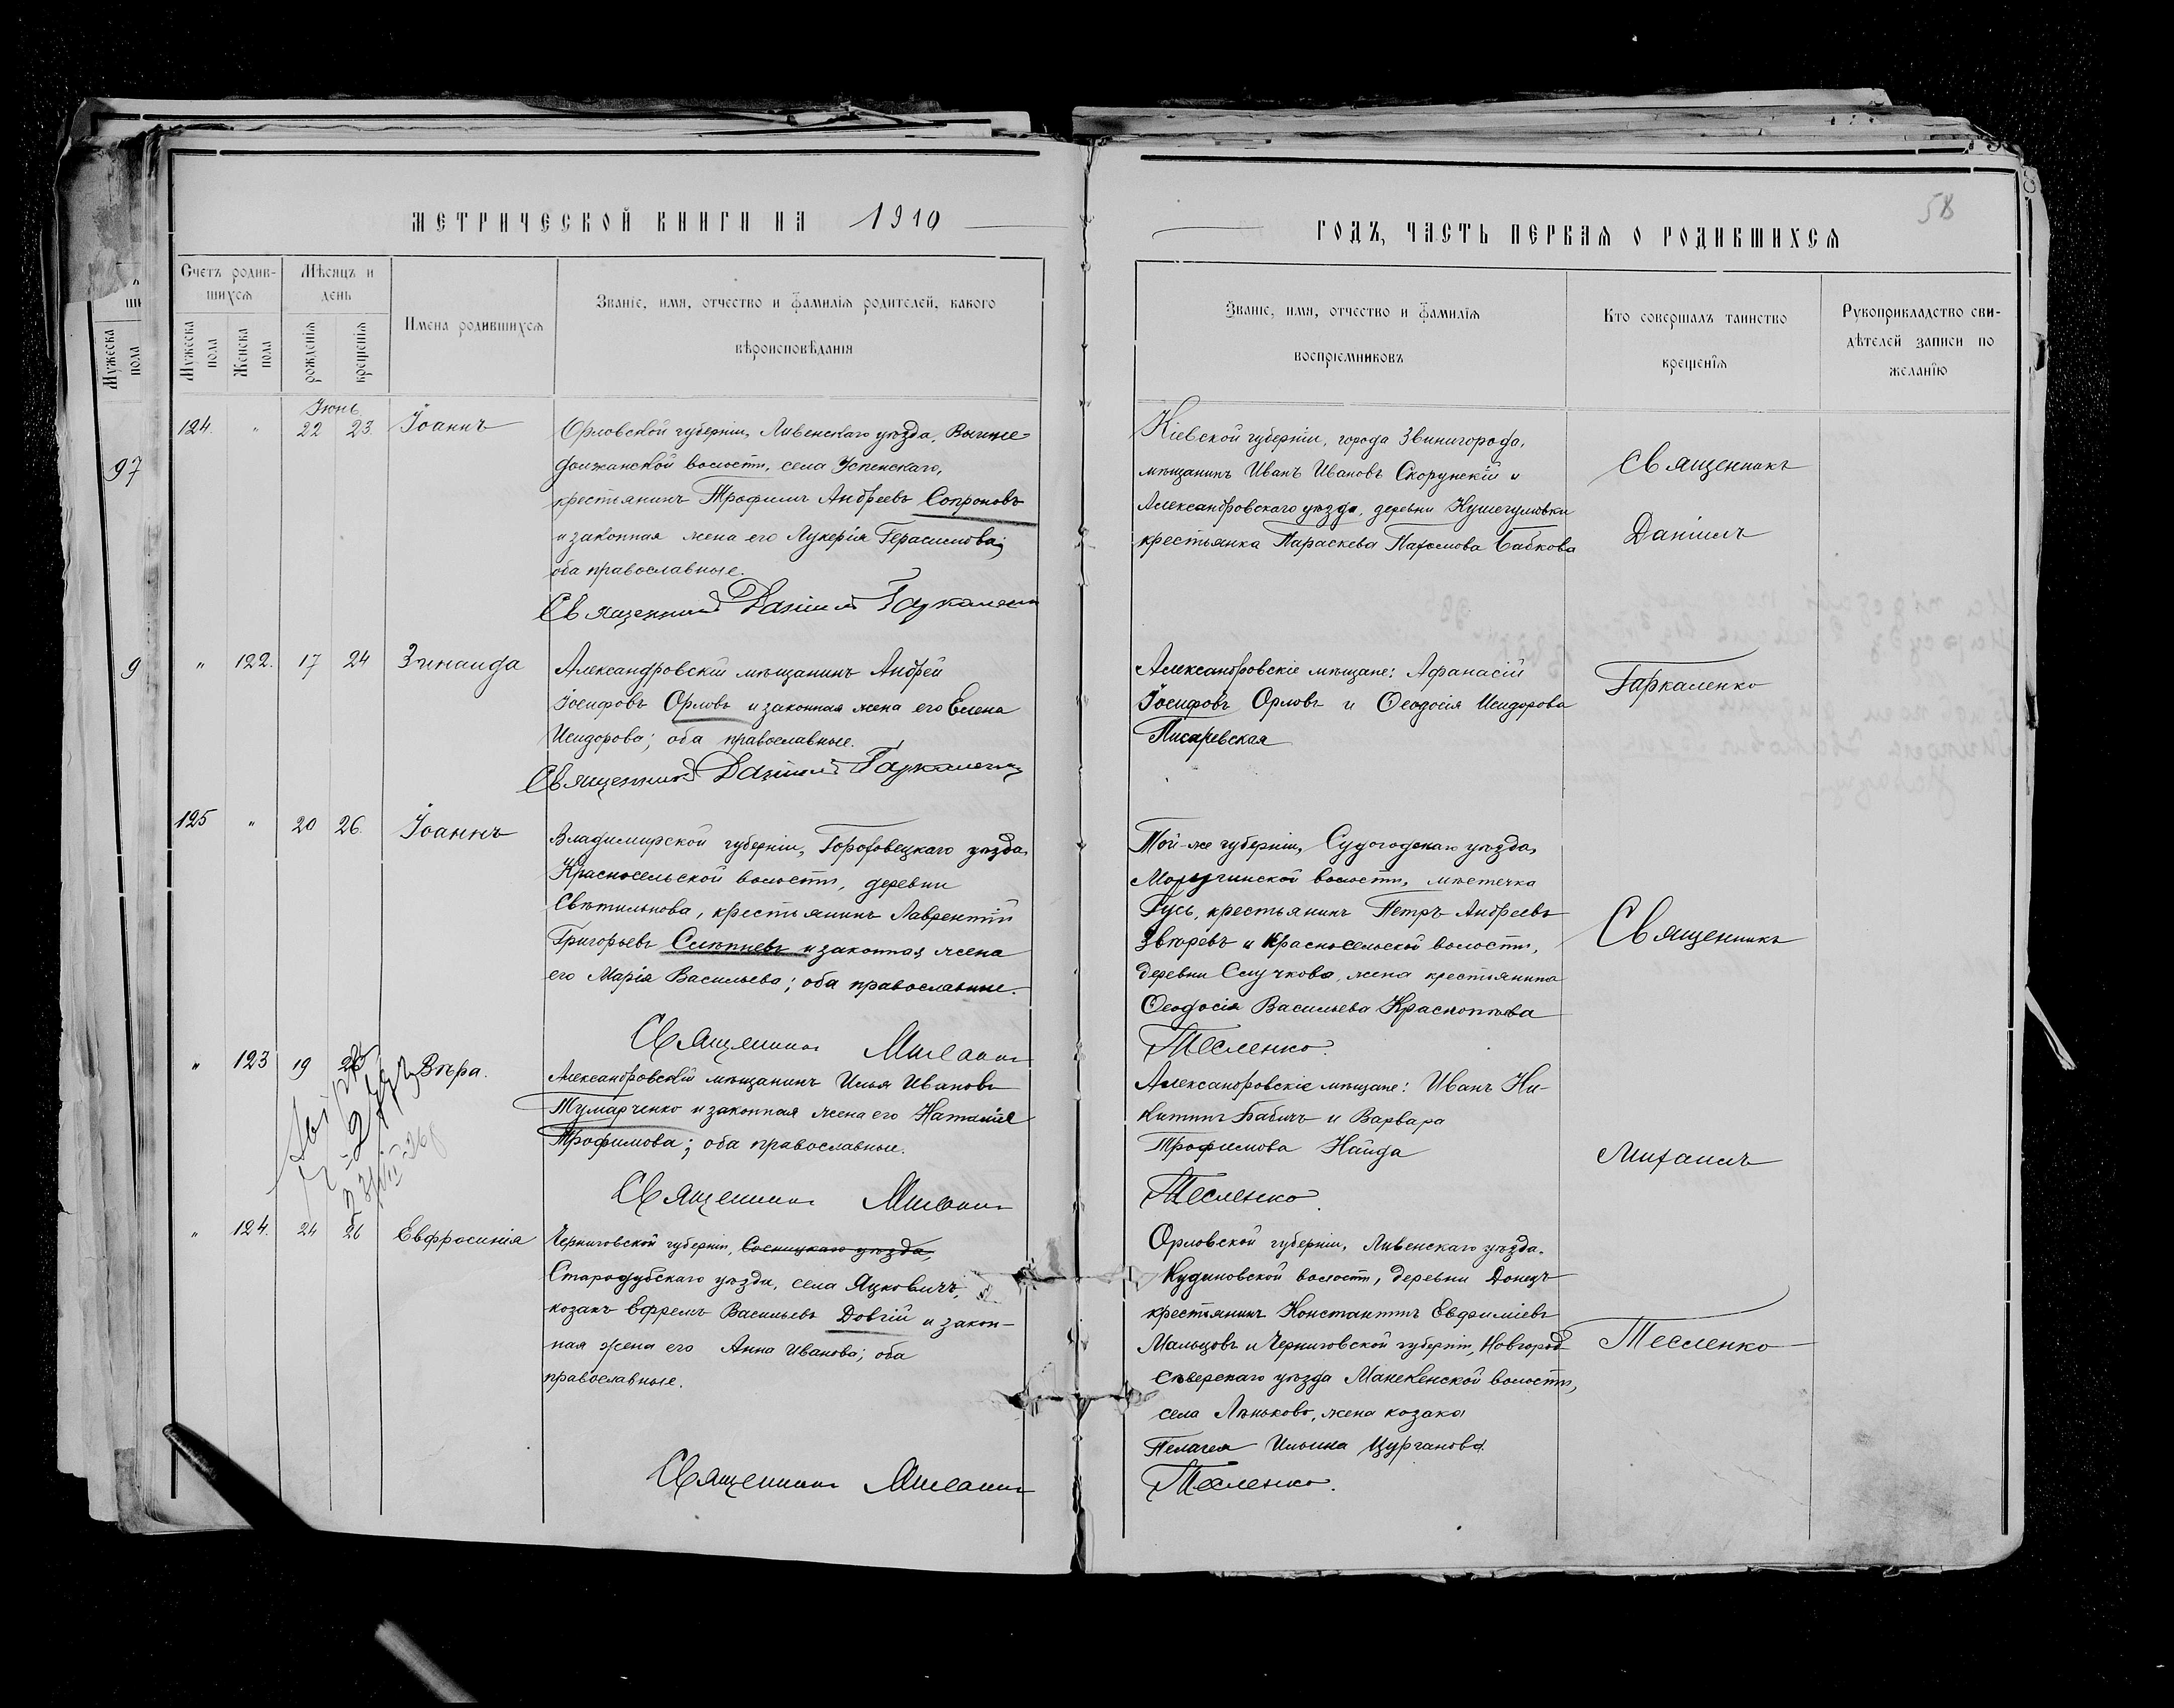 МЕТРИЧЕСКОЙ КНИГИ НА 1910
ГОДЪ, ЧАСТЬ ПЕРВАЯ О РОДИВШИХСЯ
58
Счетъ родив-
шихся
Мужеска пола
Женска пола
Мѣсяцъ и
день
рожденія
крещенія
Имена родившихся
Званіе, имя, отчество и фамилія родителей, какого
вѣроисповѣданія
Званіе, имя, отчество и фамилія
воспріемниковъ
Кто совершалъ таинство
крещенія
Рукоприкладство сви-
дѣтелей записи по
желанію
Мужеска пола
97
9
Іюнь
124. " 22 23 Іоаннъ
Орловской губерніи, Ливенскаго уѣзда, Вышне
должанской волости, села Успенскаго,
крестьянинъ Трофимъ Андреевъ Сопроновъ
и законная жена его Лукерія Герасимова;
оба православные.
Священникъ Даніилъ Гаркаленко
Кіевской губерніи, города Звинигорода,
мѣщанинъ Иванъ Ивановъ Скорунскій и
Александровскаго уѣзда, деревни Кушегумовки
крестьянка Параскева Пахомова Бабкова
Священникъ
Даніилъ
" 122. 17 24 Зинаида
Александровскій мѣщанинъ Андрей
Іосифовъ Орловъ и законная жена его Елена
Исидорова; оба православные.
Священникъ Даніилъ Гаркаленко
Александровскіе мѣщане: Афанасій
Іосифовъ Орловъ и Ѳеодосія Исидорова
Писаревская
Гаркаленко
125 " 20 26. Іоаннъ
Владимирской губерніи, Гороховецкаго уѣзда,
Красносельской волости, деревни
Свѣтильнова, крестьянинъ Лаврентій
Григорьевъ Слѣпневъ и законная жена
его Марія Васильева; оба православные.
Священникъ Михаилъ
Той-же губерніи, Судогодскаго уѣзда,
волости, мѣстечка
Гусь, крестьянинъ Петръ Андреевъ
Звѣревъ и Красносельской волости,
деревни Случкова, жена крестьянина
Ѳеодосія Васильева
Тесленко.
Священникъ
" 123 19 Вѣра.
Александровскій мѣщанинъ Илья Ивановъ
Тумарченко и законная жена его Наталія
Трофимова; оба православные.
Священникъ Михаилъ
Александровскіе мѣщане: Иванъ Ни-
китинъ Бабичъ и Варвара
Трофимова Найда
Тесленко
Михаилъ
" 124. 24 26 Евфросинія
Черниговской губерніи, Сосницкаго уѣзда,
Стародубскаго уѣзда, села Яцковичъ,
козакъ Ефремъ Васильевъ Довгій и закон-
ная жена его Анна Иванова; оба
православные.
Священникъ Михаилъ
Орловской губерніи, Ливенскаго уѣзда.
Кудиновской волости, деревни Донецъ
крестьянинъ Константинъ Евфиміевъ
Мальцовъ и Черниговской губерніи, Новгород
сѣверскаго уѣзда волости,
села Лѣньково, жена козака
Пелагея Ильина Цурганова
Тесленко.
Тесленко